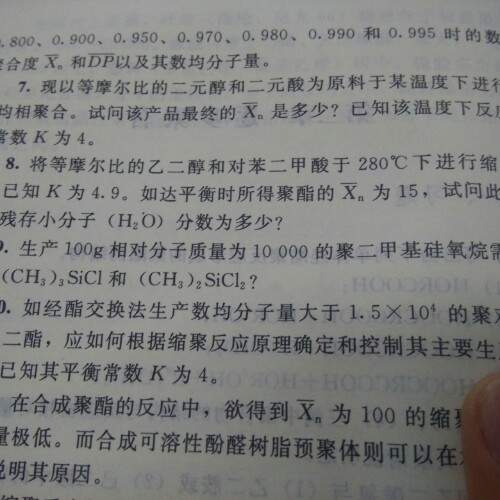 0.800、0.900、0.950、0.970、0.980、0.990 和 0.995 时的数
聚合度 X̅n 和D̅P̅以及其数均分子量。
7. 现以等摩尔比的二元醇和二元酸为原料于某温度下进行
均相聚合。试问该产品最终的 X̅n 是多少？已知该温度下反应
常数 K 为 4。
8. 将等摩尔比的乙二醇和对苯二甲酸于 280℃下进行缩
已知 K 为 4.9。如达平衡时所得聚酯的 X̅n 为 15，试问此
残存小分子（H₂O）分数为多少？
9. 生产 100g 相对分子质量为 10 000 的聚二甲基硅氧烷需
(CH₃)₃SiCl 和 (CH₃)₂SiCl₂？
0. 如经酯交换法生产数均分子量大于 1.5×10⁴ 的聚对
二酯，应如何根据缩聚反应原理确定和控制其主要生
已知其平衡常数 K 为 4。
在合成聚酯的反应中，欲得到 X̅n 为 100 的缩聚
量极低。而合成可溶性酚醛树脂预聚体则可以在
说明其原因。